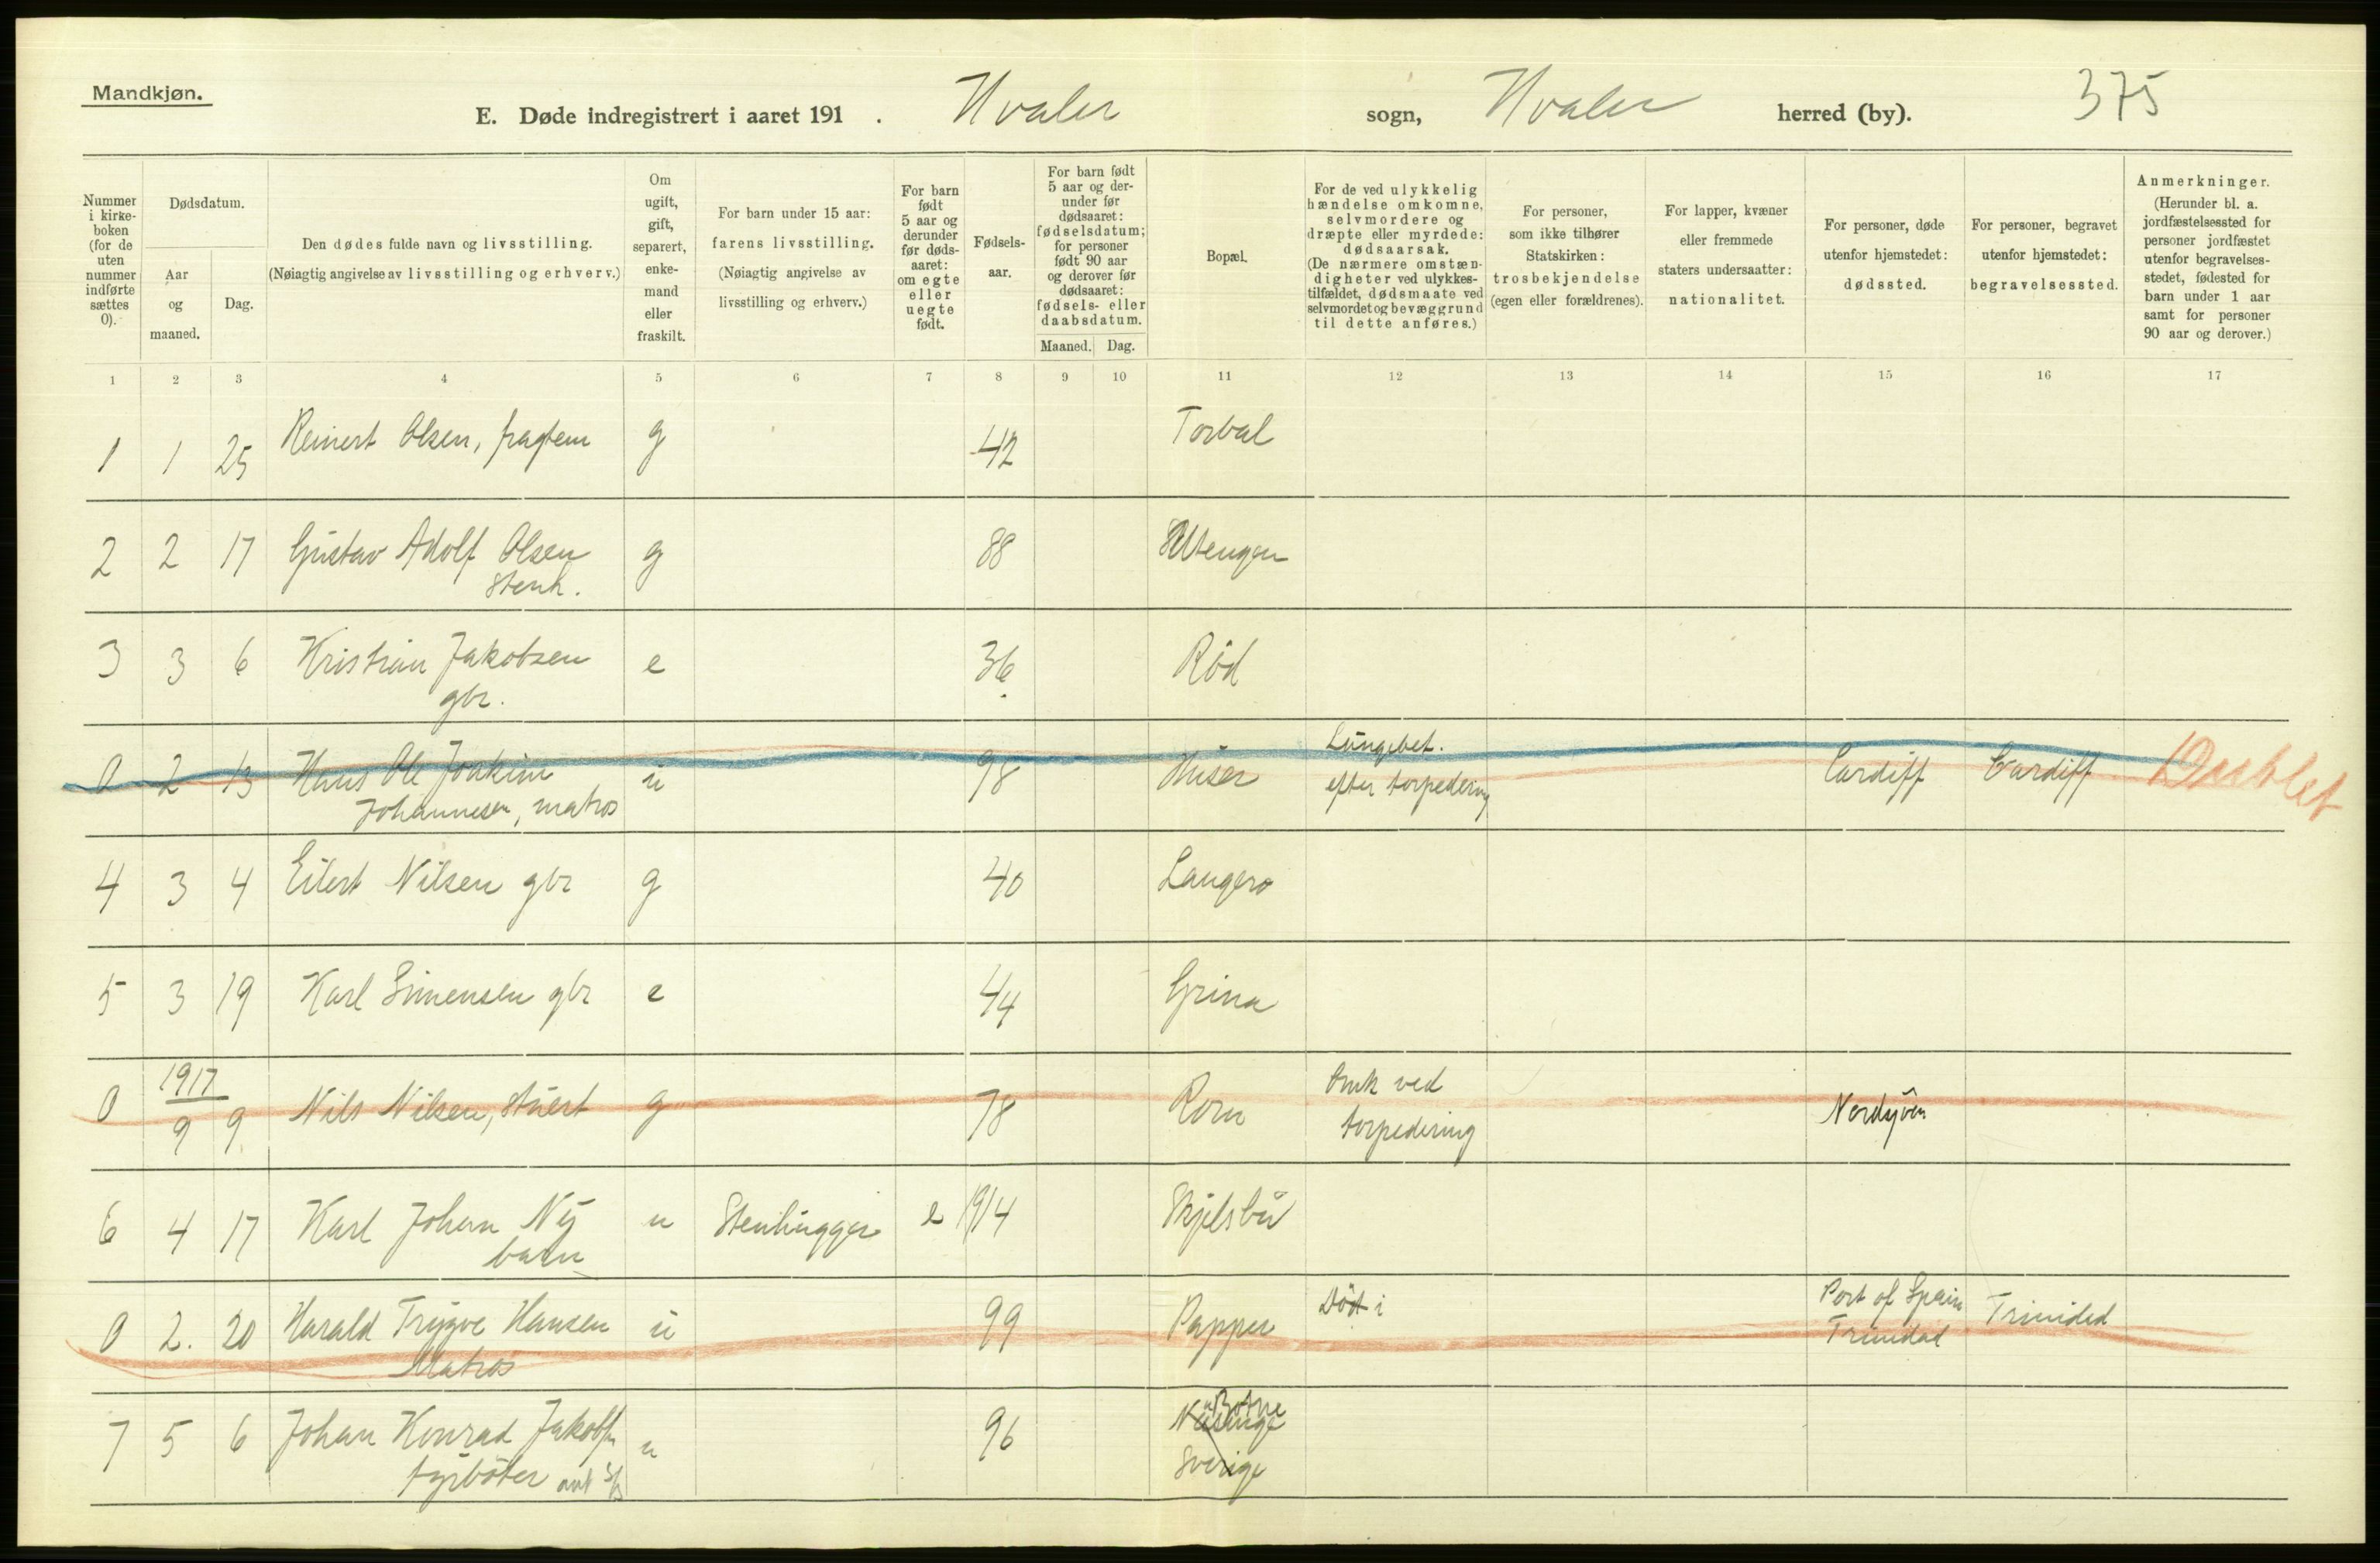 Mandkjøn.
E. Døde indregistrert i aaret 191 . Hvaler sogn, Hvaler herred (by). 375
Nummer i kirke-boken (for de uten nummer indførte sættes 0).
Dødsdatum.
Aar og maaned.
Dag.
Den dødes fulde navn og livsstilling.
(Nøiagtig angivelse av livsstilling og erhverv.)
Om ugift, gift, separert, enke-mand eller fraskilt.
For barn under 15 aar: farens livsstilling.
(Nøiagtig angivelse av livsstilling og erhverv.)
For barn født 5 aar og derunder før døds-aaret: om egte eller uegte født.
Fødsels-aar.
For barn født 5 aar og der-under før dødsaaret: fødselsdatum; for personer født 90 aar og derover før dødsaaret: fødsels- eller daabsdatum.
Maaned. Dag.
Bopæl.
For de ved ulykkelig hændelse omkomne, selvmordere og dræpte eller myrdede: dødsaarsak.
(De nærmere omstæn-digheter ved ulykkes-tilfældet, dødsmaate ved selvmordet og bevæggrund til dette anføres.)
For personer, som ikke tilhører Statskirken: trosbekjendelse (egen eller forældrenes).
For lapper, kvæner eller fremmede staters undersaatter: nationalitet.
For personer, døde utenfor hjemstedet: dødssted.
For personer, begravet utenfor hjemstedet: begravelsessted.
Anmerkninger.
(Herunder bl. a. jordfæstelsessted for personer jordfæstet utenfor begravelses-stedet, fødested for barn under 1 aar samt for personer 90 aar og derover.)
1 2 3 4 5 6 7 8 9 10 11 12 13 14 15 16 17
1 1 25 Reinert Olsen, fragtem g 42 Torbal
2 2 17 Gustav Adolf Olsen g 88
stenh.
3 3 6 Kristian Jakobsen e 36 Röd
gbr.
0 2 13 Hans Ole Joakim u 98 Huser Lungebet. Cardiff Cardiff Dublet
Johannesen, matros efter torpedering
4 3 4 Eilert Nilsen gbr g 40 Laugero
5 3 19 Karl Simensen gbr e 44 Grina
0 1917
9 9 Nils Nilsen, stuert g 78 Rorn Omk ved
torpedering Nordsjöen
6 4 17 Karl Johan Ny u Stenhugger e 1914 Skjelsbu
barn
0 2. 20 Harald Trygve Hansen u 99 Papper Död i Port of Spain Trinidad
Matros Trinidad
7 5 6 Johan Konrad Jakobs. u 96 Botne
Näsinge
fyrböter Sverige